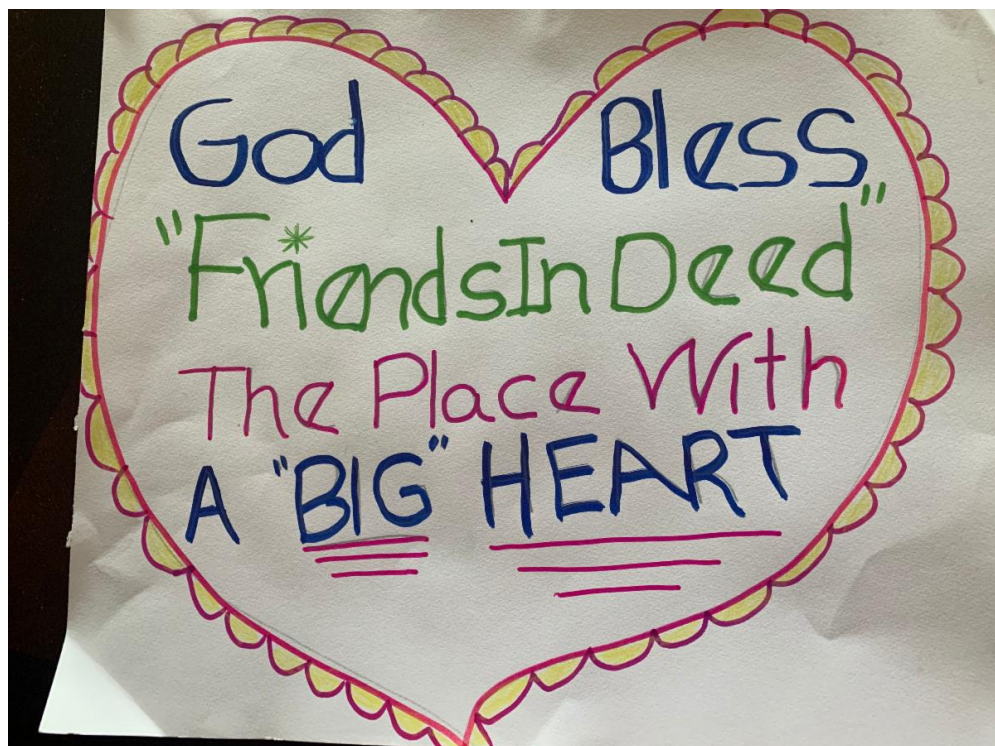 God Bless
"Friends In Deed"
The Place With
A "BIG" HEART